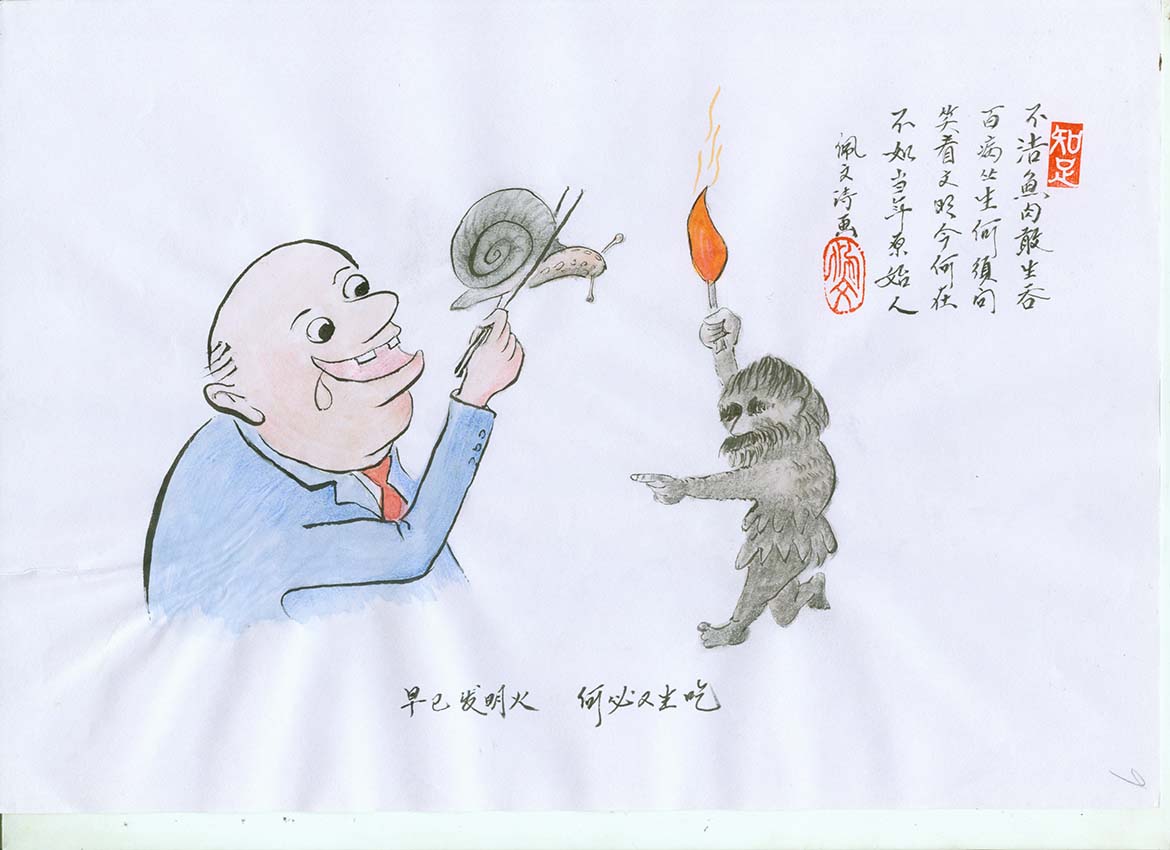 知足
不洁魚肉敢生吞
百病丛生何须问
笑看文明今何在
不如当年原始人
佩文诗画
早已发明火 何必又生吃